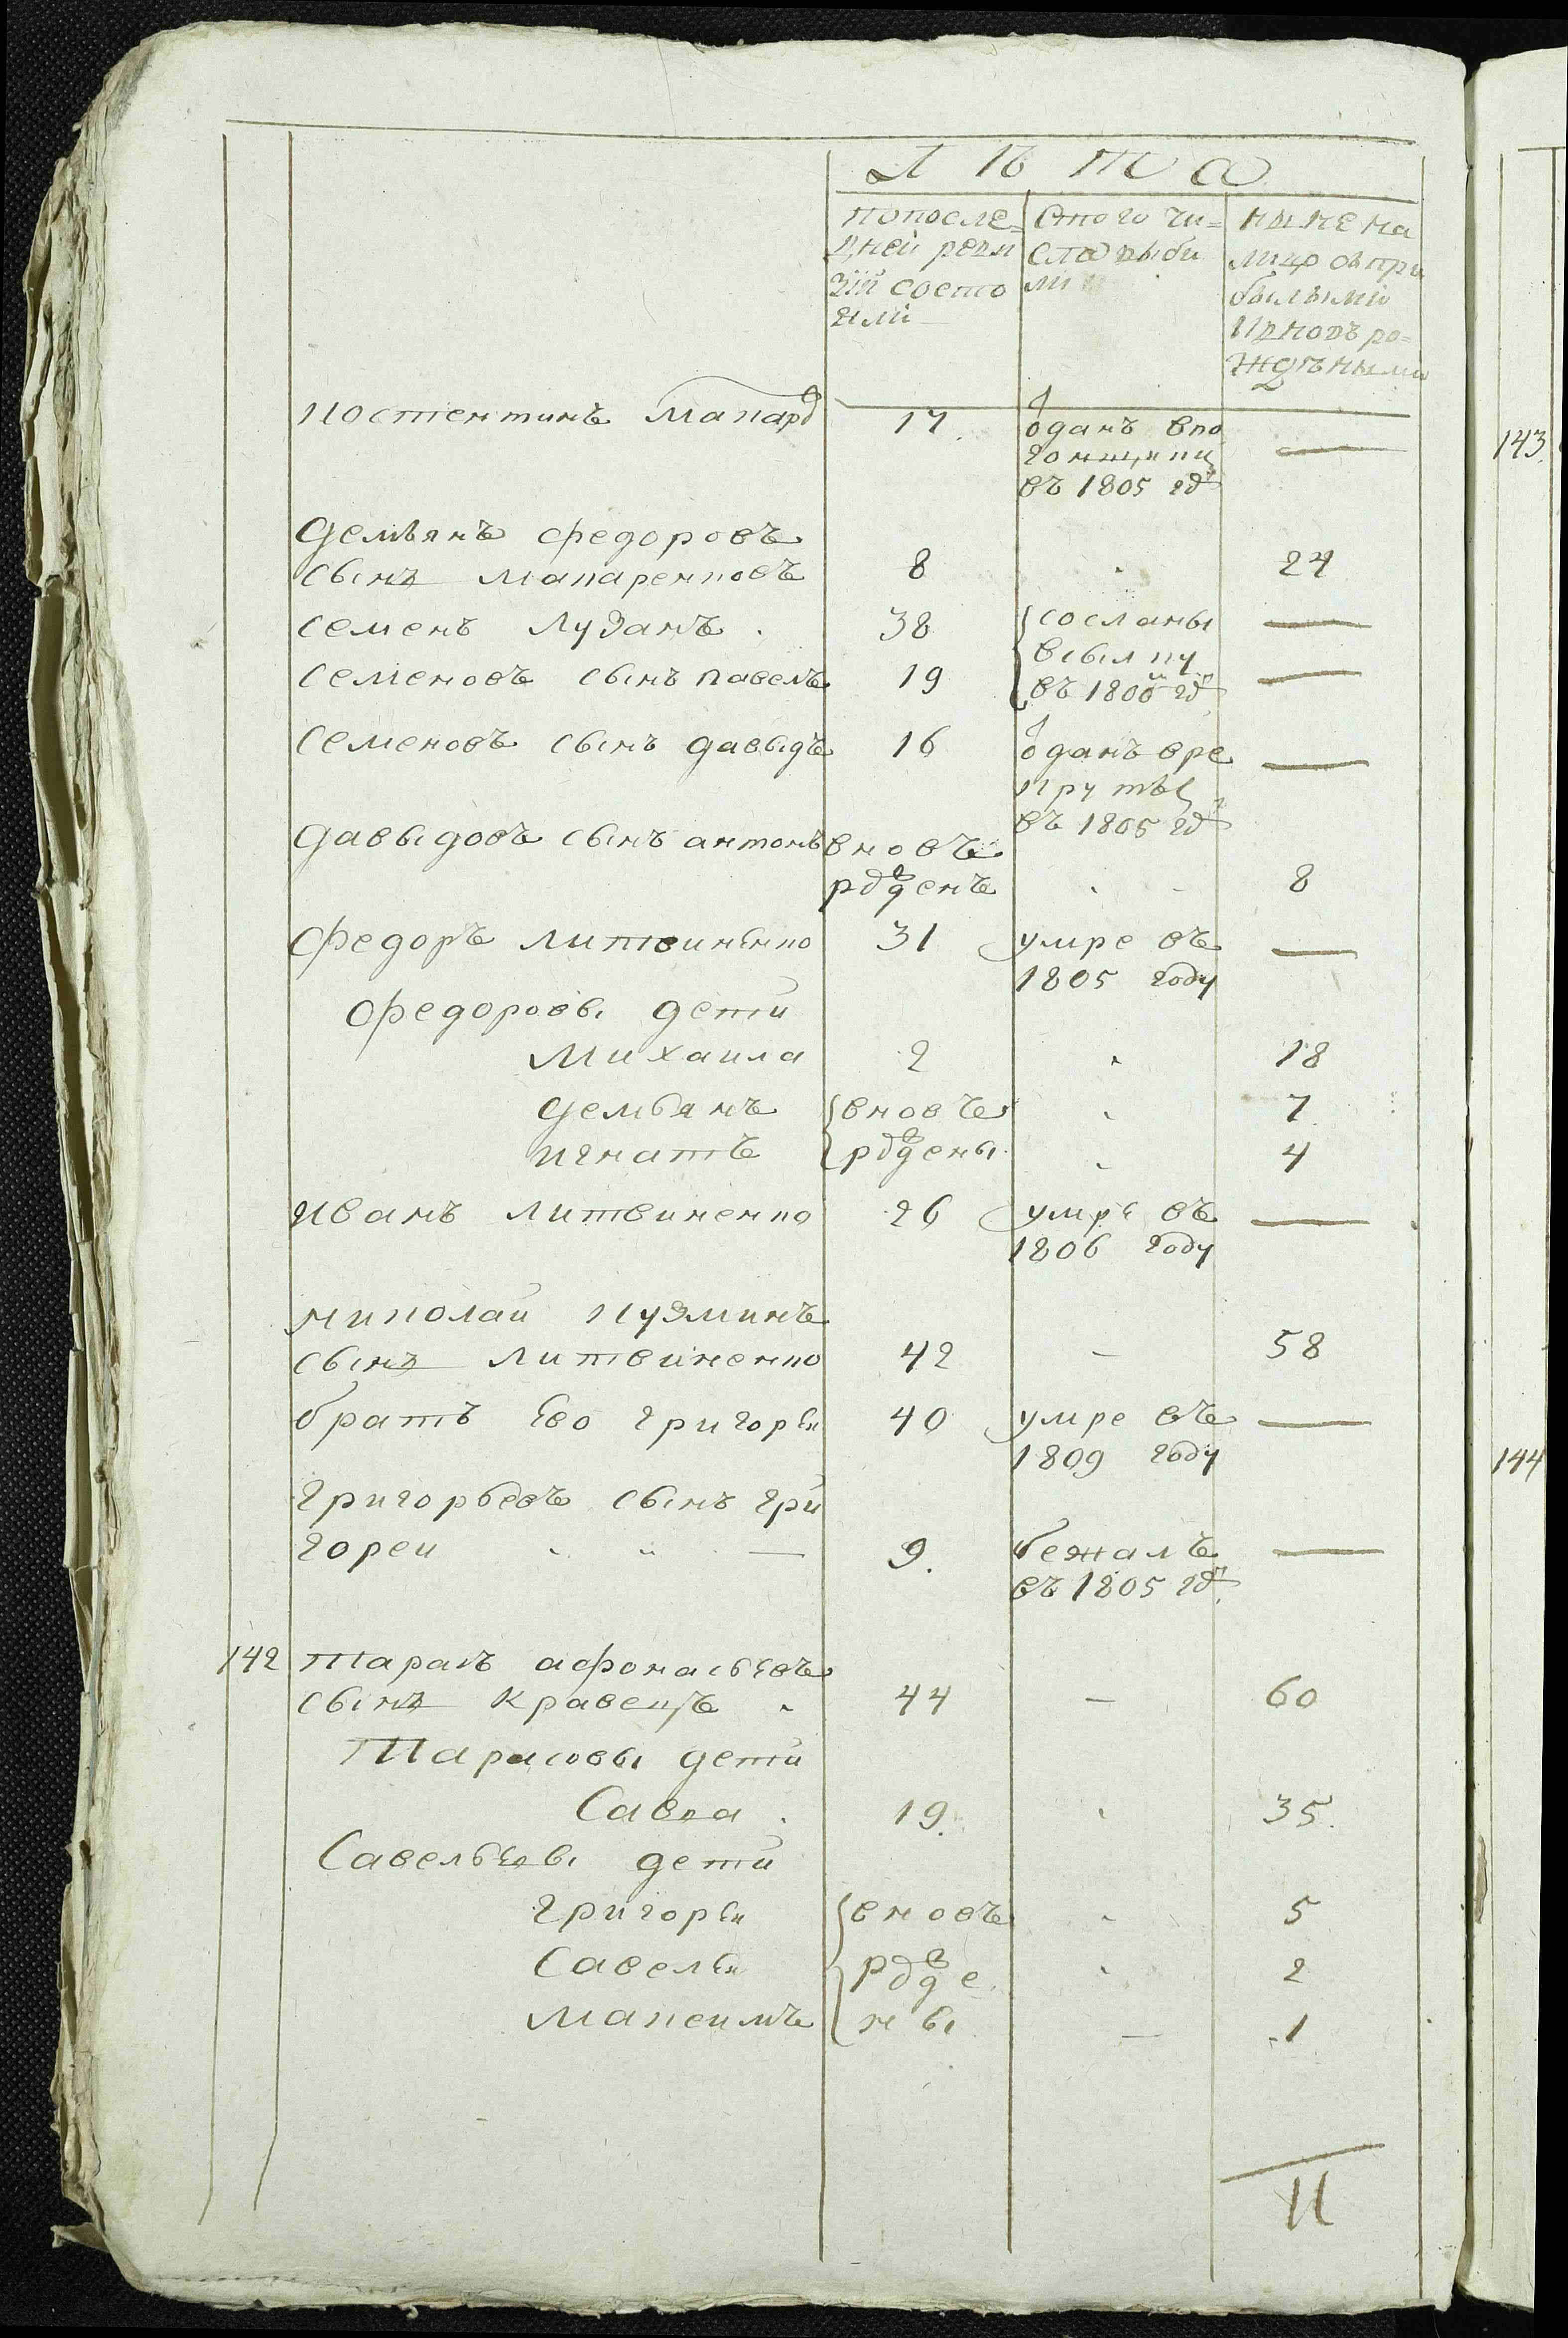 Лѣта
попосле=
дней реви
зіи состо
яли
стого чи=
сла выбы
ли
ныне на
лицо съпри
былыми
ивновъ ро=
жденными
Костентинъ Макар
17.
ѿданъ впо
гонщики
въ 1805 гду
Демьянъ Федоровъ
сынъ Макаренковъ 8 24
Семенъ Лузанъ. 38 сосланы
всылку
Семеновъ сынъ Павелъ 19 въ 1806 гд
Семеновъ сынъ Давыдъ 16 ѿданъ вре
круты
въ 1805 гд
Давыдовъ сынъ Антонъ вновь
рожденъ 8
Федоръ Литвиненко 31 умре въ
1805 году
Федоровы дети
Михаила 2 18
Демьянъ вновь 7
Игнатъ рождены 4
Иванъ Литвиненко 26 умре въ
1806 году
Николай Кузминъ
сынъ Литвиненко 42 58
братъ Ево Григореи 40 умре въ
1809 году
Григорьевъ сынъ Гри
горей 9. бежалъ
въ 1805 гд
142 Тарасъ Афонасьевъ
сынъ Кравецъ 44 60
Тарасовы дети
Савва 19. 35.
Савельевы дети
Григореи вновь 5
Савелеи рожде 2
Максимъ ны 1
11
143.
144